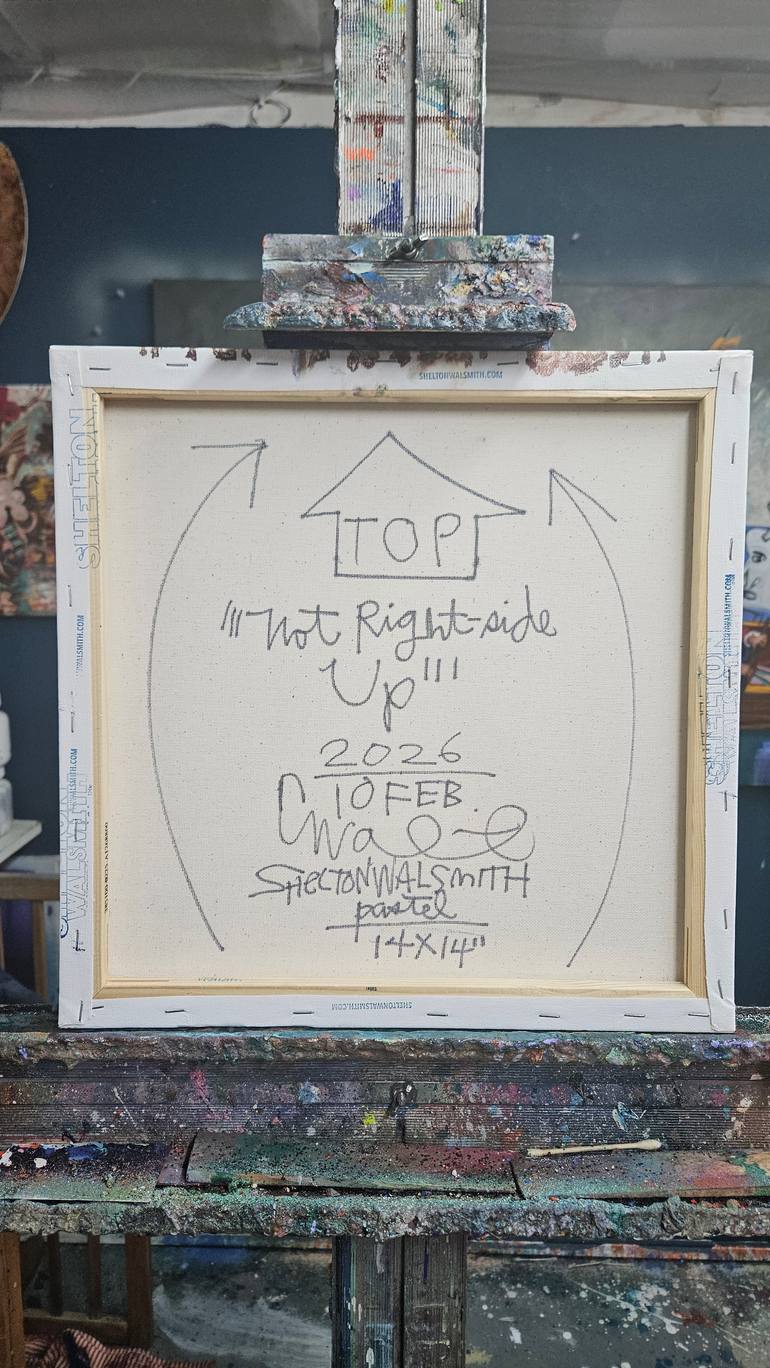 SHELTONWALSMITH.COM
SHELTON
TOP
"'Not Right-side
Up'"
2026
10 FEB.
SHELTONWALSMITH
pastel
14X14"
WALSMITH.COM
SHELTONWALSMITH.COM
SHELTON
WALSMITH
SHELTONWALSMITH.COM
WALSMITH
SHELTONWALSMITH.COM